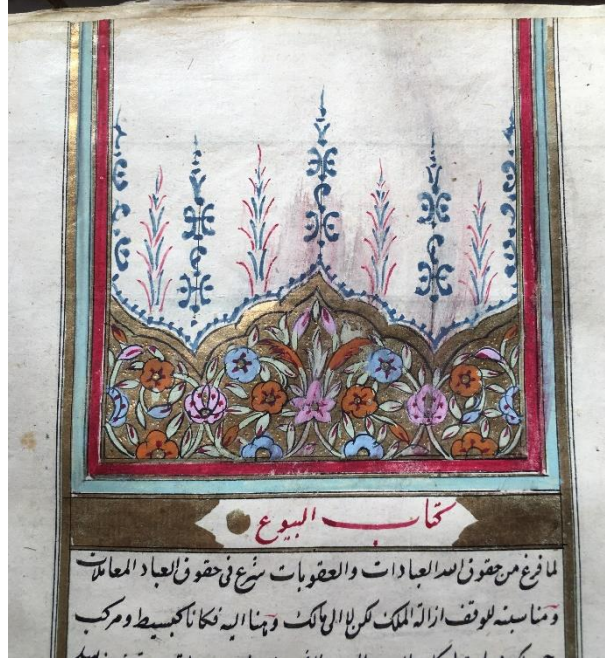 كتاب البيوع
لما فرغ من حقوق الله العبادات والعقوبات شرع في حقوق العباد المعاملات
ومناسبته للوقف ازالة الملك لكن لا الى مالك وهنا اليه فكانا كبسيط ومركب